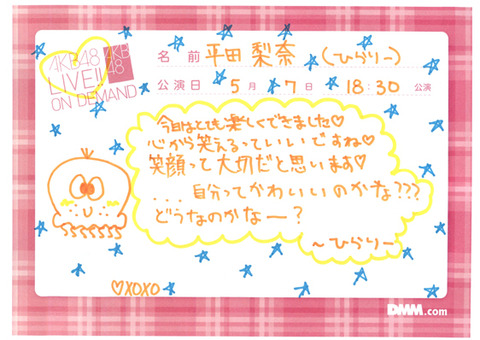 AKB48
LIVE!!
ON DEMAND
AKB
48
名 前 平田 梨奈 (ひらりー)
公演日 5月 7日 18:30 公演
今日はとても楽しくできました♡
心から笑えるっていいですね♡
笑顔って大切だと思います♡
...自分ってかわいいのかな???
どうなのかなー?
~ひらりー
♡XOXO
DMM.com